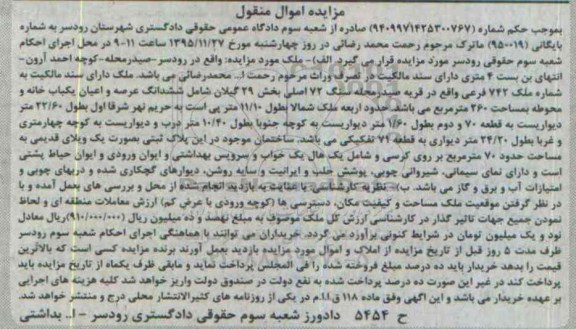 مزایده اموال منقول
بموجب حکم شماره (۹۴۰۹۹۷۱۴۲۵۳۰۰۷۶۷) صادره از شعبه سوم دادگاه عمومی حقوقی دادگستری شهرستان رودسر به شماره
بایگانی (۹۵۰۰۱۹) ماترک مرحوم رحمت محمد رضائی در روز چهارشنبه مورخ ۱۳۹۵/۱۱/۲۷ ساعت ۱۱-۹ در محل اجرای احکام
شعبه سوم حقوقی رودسر مورد مزایده قرار می گیرد. الف)- ملک مورد مزایده: واقع در رودسر-صیدرمحله-کوچه احمد آرون-
انتهای بن بست ۴ متری دارای سند مالکیت در تصرف وراث مرحوم رحمت ا... محمدرضائی می باشد. ملک دارای سند مالکیت به
شماره ملک ۷۴۲ فرعی واقع در قریه صیدرمحله سنگ ۷۲ اصلی بخش ۲۹ گیلان شامل ششدانگ عرصه و اعیان یکباب خانه و
محوطه بمساحت ۲۶۰ مترمربع می باشد. حدود اربعه ملک شمالا بطول ۱۱/۱۰ متر پی است به حریم نهر شرقا اول بطول ۲۲/۶۰ متر
دیواریست به قطعه ۷۰ و دوم بطول ۱/۶۰ متر دیواریست به کوچه جنوبا بطول ۱۰/۴۰ متر درب و دیواریست به کوچه چهارمتری
و غربا بطول ۲۴/۲۰ متر دیواری به قطعه ۷۴ تفکیکی می باشد. ساختمان موجود در این پلاک ثبتی بصورت یک ویلای قدیمی به
مساحت حدود ۷۰ مترمربع بر روی کرسی و شامل یک هال یک خواب و سرویس بهداشتی و ایوان ورودی و ایوان حیاط پشتی
است و دارای نمای سیمانی، شیروانی چوبی، پوشش حلب و ایرانیت و سایه روشن، دیوارهای گچکاری شده و دربهای چوبی و
امتیازات آب و برق و گاز می باشد. ب)- نظریه کارشناسی: با عنایت به بازدید انجام شده از محل و بررسی های بعمل آمده و با
در نظر گرفتن موقعیت ملک مساحت و کیفیت مکان، دسترسی ها (کوچه ورودی با عرض کم) ارزش معاملات منطقه ای و لحاظ
نمودن جمیع جهات تاثیر گذار در کارشناسی ارزش کل ملک موصوف به مبلغ نهصد و ده میلیون ریال (۹۱۰/۰۰۰/۰۰۰)ریال معادل
نود و یک میلیون تومان در شرایط کنونی برآورد می گردد. خریداران می توانند با هماهنگی اجرای احکام شعبه سوم رودسر
ظرف مدت ۵ روز قبل از تاریخ مزایده از املاک و اموال مورد مزایده بازدید بعمل آورند برنده مزایده کسی است که بالاترین
قیمت را بدهد خریدار باید ده درصد مبلغ فروخته شده را فی المجلس پرداخت نماید و مابقی ظرف یکماه از تاریخ مزایده باید
پرداخت کند در غیر این صورت ده درصد پرداخت شده به نفع دولت در صندوق دولت واریز خواهد شد کلیه هزینه های اجرایی
بر عهده خریدار می باشد و این آگهی وفق ماده ۱۱۸ ق.ا.ا.م در یکی از روزنامه های کثیرالانتشار محلی درج و منتشر خواهد شد.
ح ۵۴۵۴ دادورز شعبه سوم حقوقی دادگستری رودسر – ا.. بداشتی